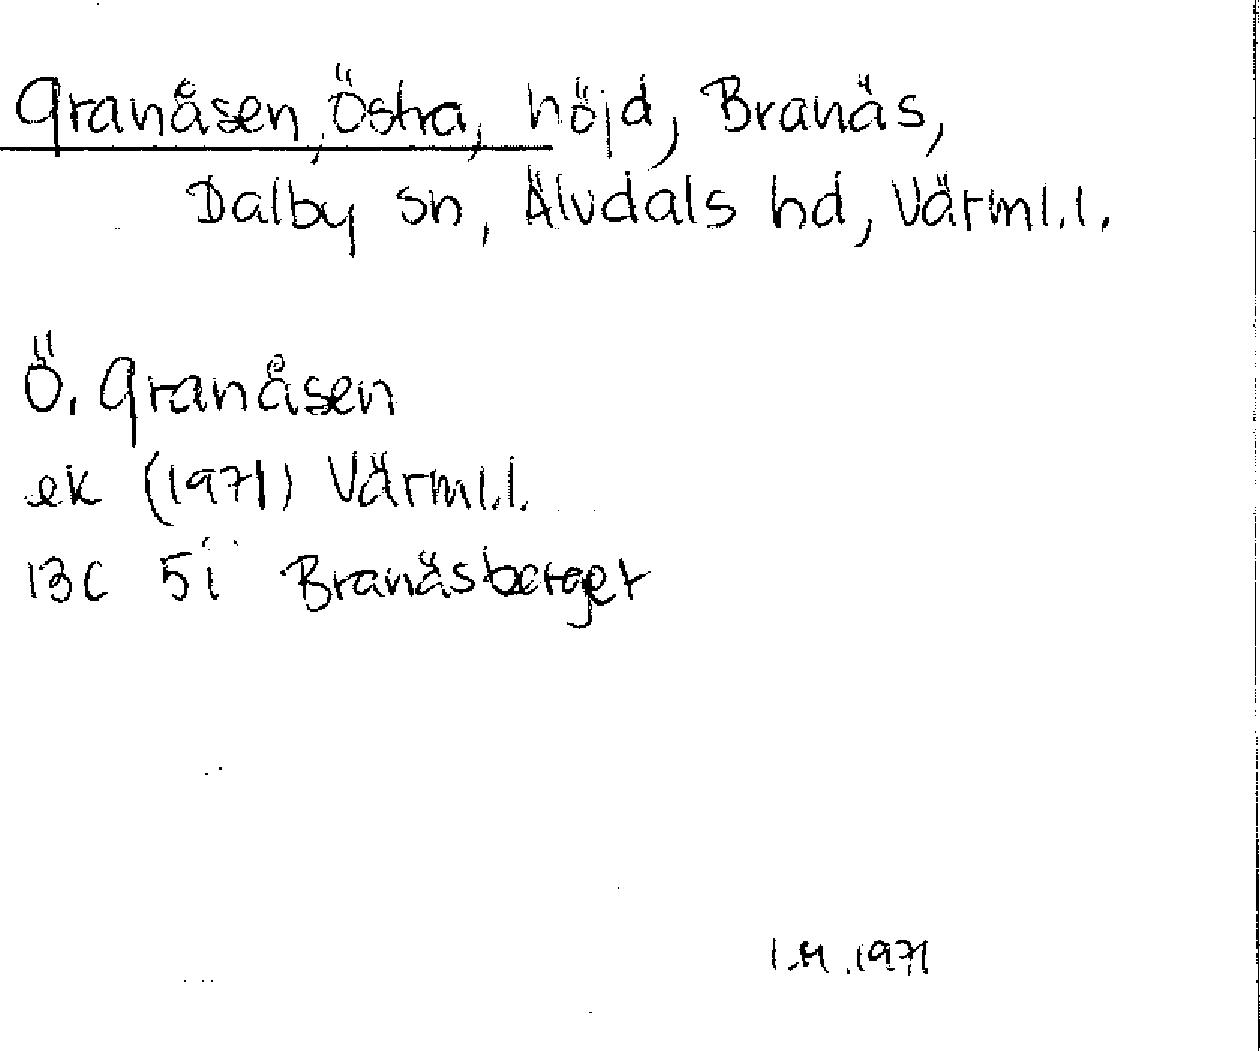 Granåsen, Östra, höjd, Branäs,
Dalby sn, Älvdals hd, Värml.l.
Ö. Granåsen
ek (1971) Värml.l.
13C 5i Branäsberget
I.M.1971